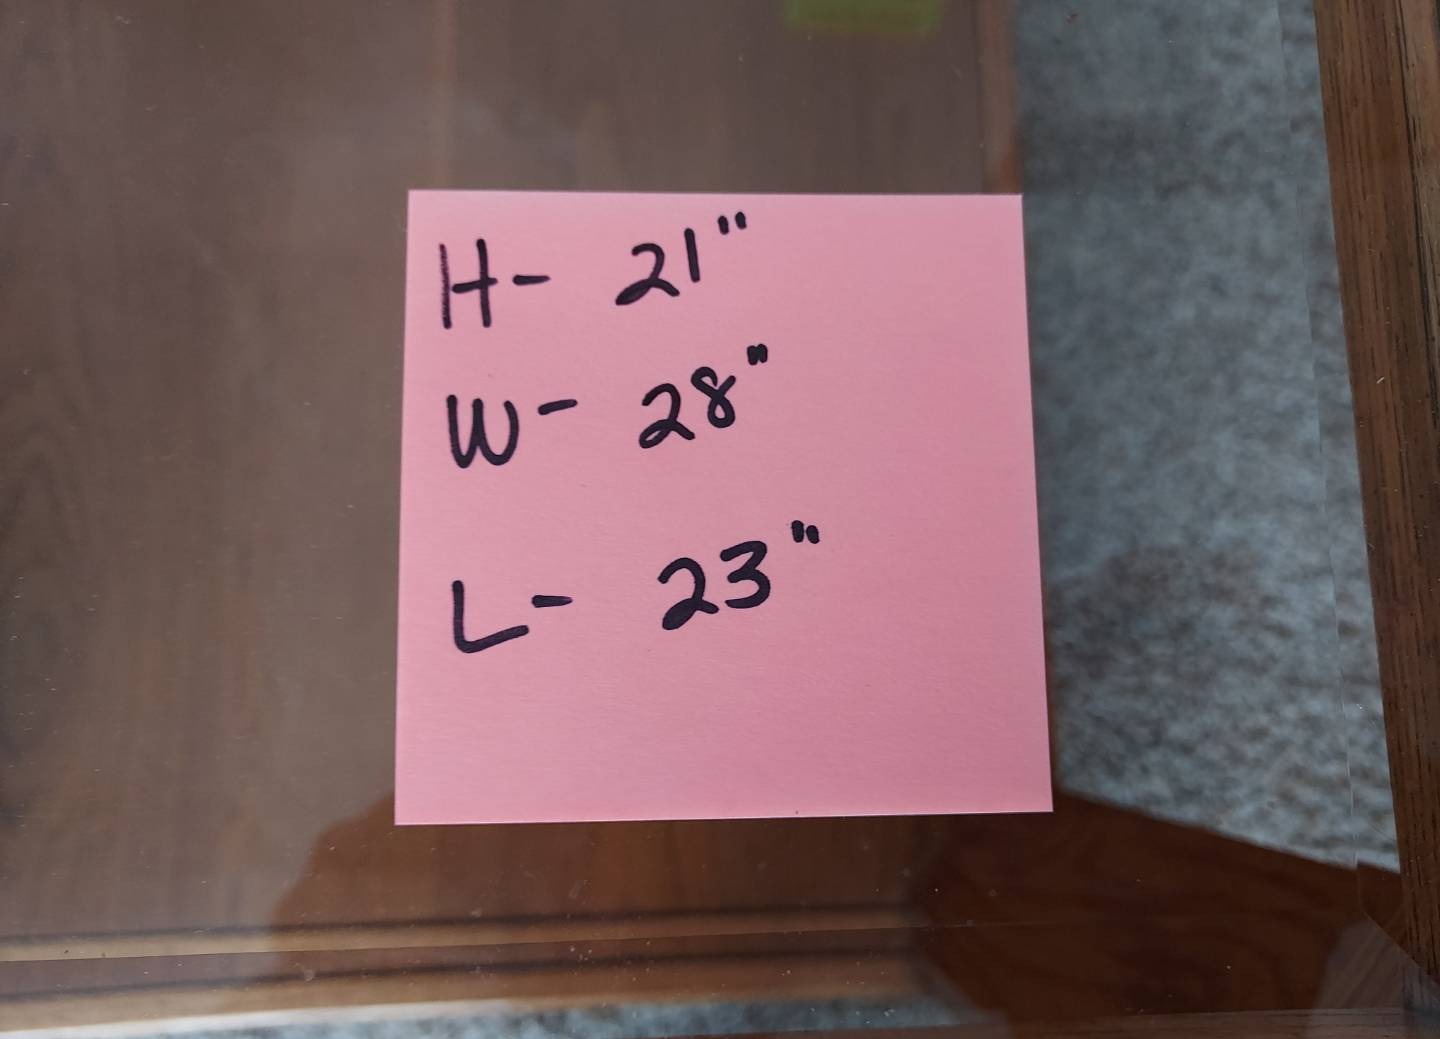 H- 21"
W- 28"
L- 23"